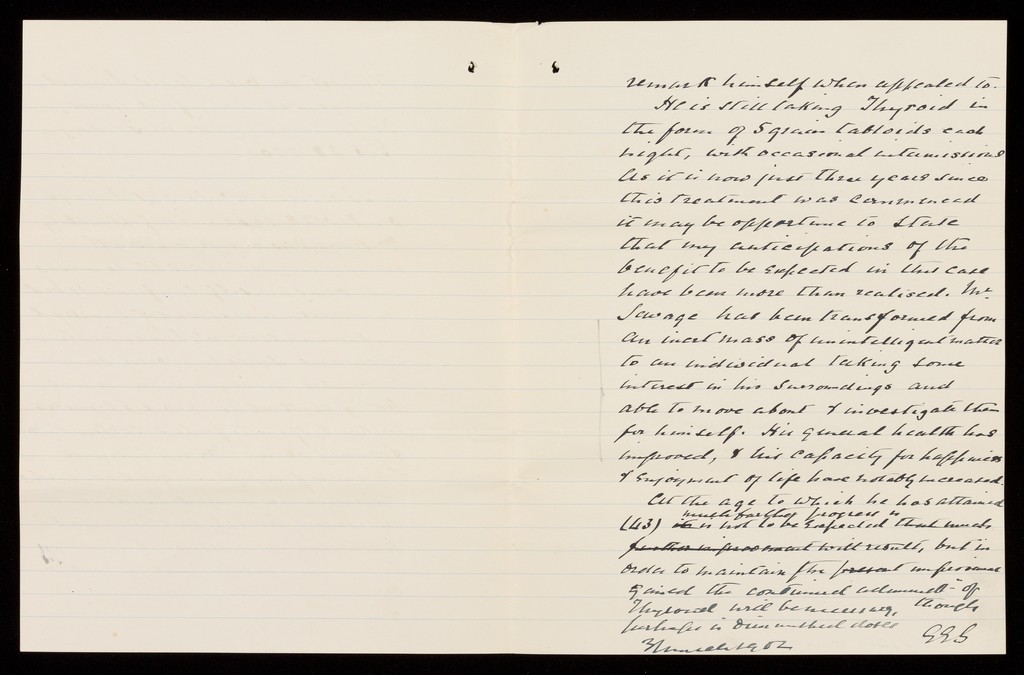 remark himself when appealed to.
He is still taking Thyroid in
the form of 5 grain tabloids each
night, with occasional intermissions
As it is now just three years since
this treatment was commenced
it may be opportune to state
that my anticipations of the
benefit to be expected in this case
have been more than realised. Mr.
Savage has been transformed from
an inert mass of unintelligent matter
to an individual taking some
interest in his surroundings and
able to move about & investigate them
for himself. His general health has
improved, & his capacity for happiness
& enjoyment of life have notably increased.
At the age to which he has attained
much further progress
(43) it is not to be expected that much
further improvement will result, but in
order to maintain the present improvement
gained the continued administ- of
Thyroid will be necessary, though
perhaps in diminished doses
GES
March 1902